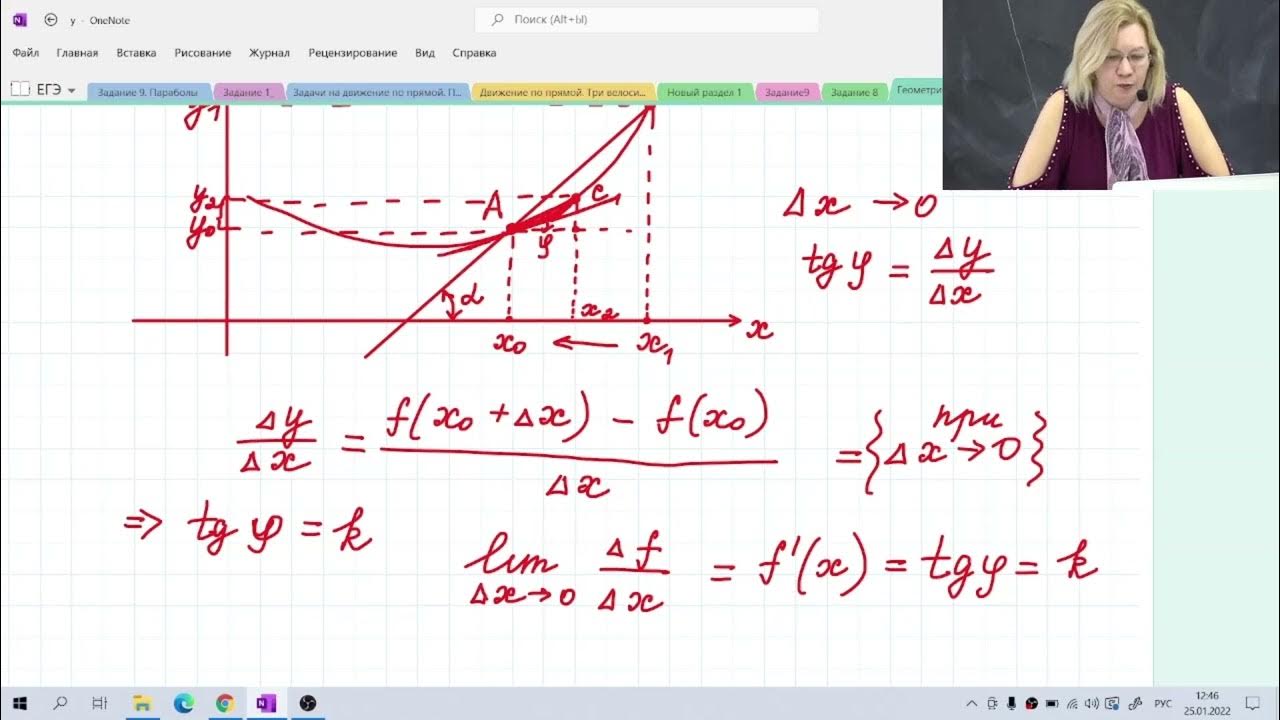 у - OneNote
Поиск (Alt+Ы)
Файл Главная Вставка Рисование Журнал Рецензирование Вид Справка
ЕГЭ Задание 9. Параболы Задание 1_ Задачи на движение по прямой. П... Движение по прямой. Три велоси... Новый раздел 1 Задание9 Задание 8 Геометри
y₁
y₂ A C
y₀ φ
α x₂
x₀ ← x₁ x
Δx → 0
tg φ = Δy/Δx
Δy/Δx = (f(x₀ + Δx) − f(x₀))/Δx = {при Δx → 0}
=> tg φ = k
lim Δx→0 Δf/Δx = f'(x) = tg φ = k
РУС 12:46
25.01.2022